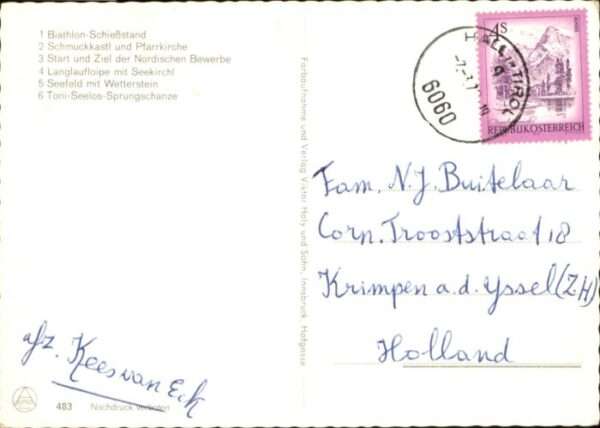 1 Biathlon-Schießstand
2 Schmuckkastl und Pfarrkirche
3 Start und Ziel der Nordischen Bewerbe
4 Langlaufloipe mit Seekirchl
5 Seefeld mit Wetterstein
6 Toni-Seelos-Sprungschanze
Farbaufnahme und Verlag Viktor Holy und Sohn, Innsbruck, Hofgasse
HALL TIROL
6060
4S
REPUBLIK ÖSTERREICH
Fam. N.J. Buitelaar
Corn. Trooststraat 18
Krimpen a.d. Yssel (Z.H)
Holland
afz. Kees van Eck
483 Nachdruck verboten